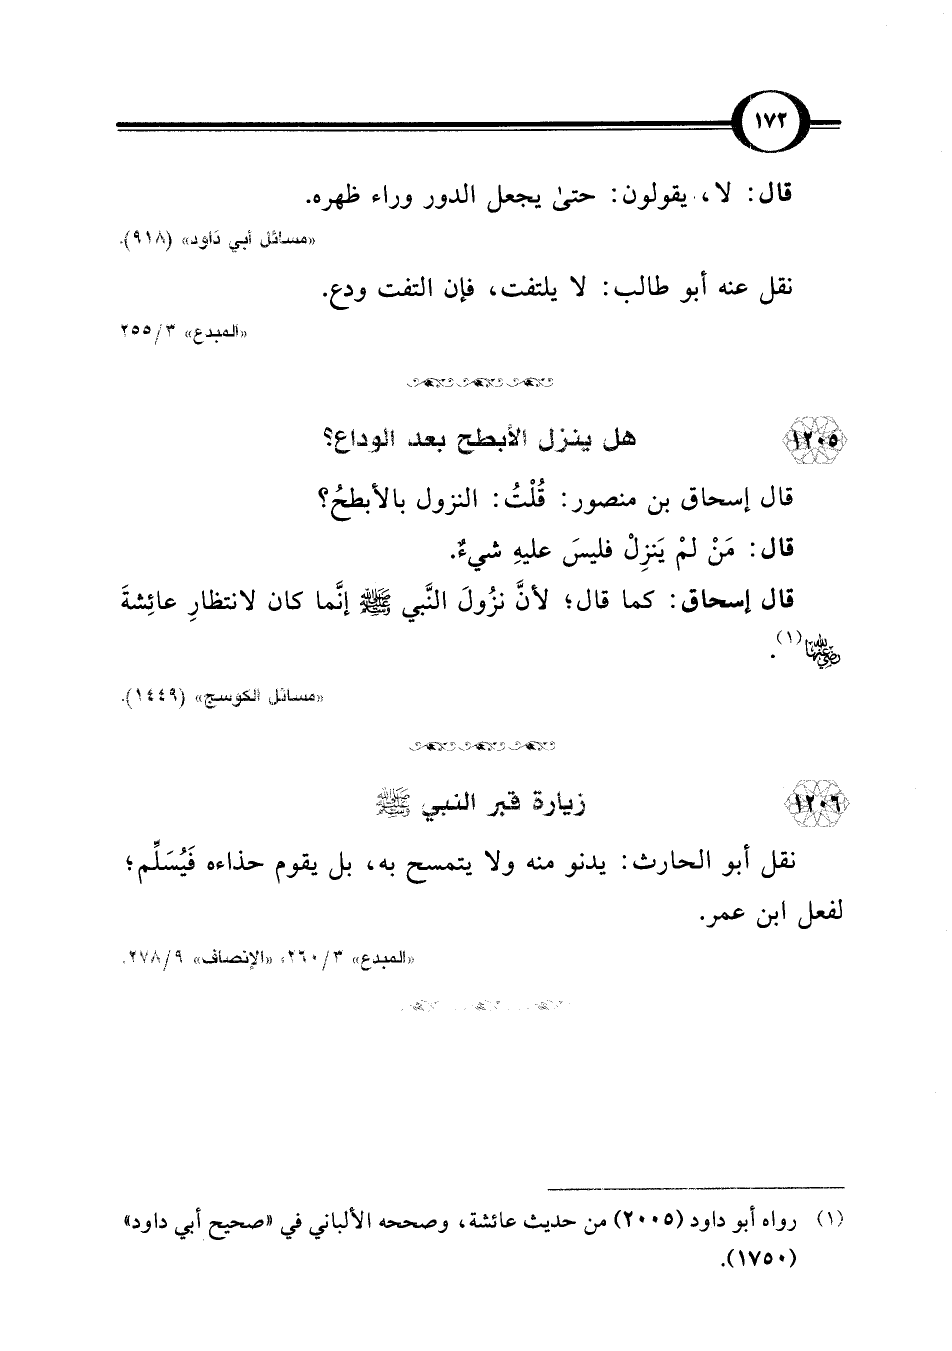 ١٧٢
قال: لا، يقولون: حتىٰ يجعل الدور وراء ظهره.
«مسائل أبي داود» (٩١٨).
نقل عنه أبو طالب: لا يلتفت، فإن التفت ودع.
«المبدع» ٣/٢٥٥
١٢٠٥ هل ينزل الأبطح بعد الوداع؟
قال إسحاق بن منصور: قُلْتُ: النزول بالأبطحُ؟
قال: مَنْ لمْ يَنزِلْ فليسَ عليهِ شيءٌ.
قال إسحاق: كما قال؛ لأنَّ نزُولَ النَّبي ﷺ إنَّما كان لانتظارِ عائِشةَ
رضي الله عنها(١).
«مسائل الكوسج» (١٤٤٩).
١٢٠٦ زيارة قبر النبي ﷺ
نقل أبو الحارث: يدنو منه ولا يتمسح به، بل يقوم حذاءه فَيُسَلِّم؛
لفعل ابن عمر.
«المبدع» ٣/٢٦٠، «الإنصاف» ٩/٢٧٨.
(١) رواه أبو داود (٢٠٠٥) من حديث عائشة، وصححه الألباني في «صحيح أبي داود»
(١٧٥٠).